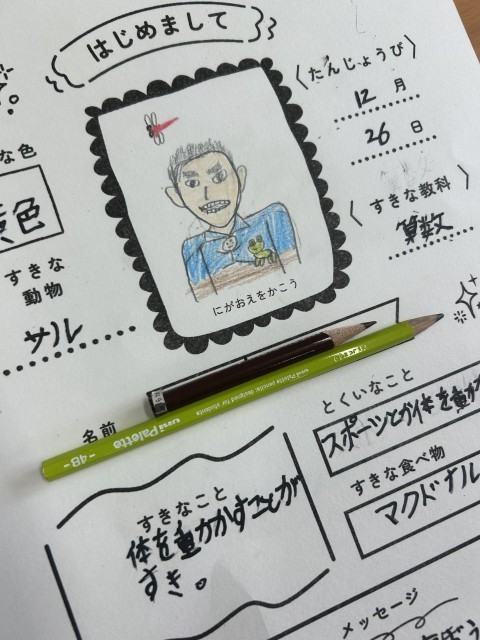 はじめまして
〈たんじょうび〉
12月
26日
な色
黄色
〈すきな教科〉
算数
すきな
動物
サル
にがおえをかこう
uni Palette pencils: designed for students
uni Palette
-4B-
名前
とくいなこと
スポーツとか体を動か
すきな食べ物
マクドナル
すきなこと
体を動かかすことが
すき。
メッセージ